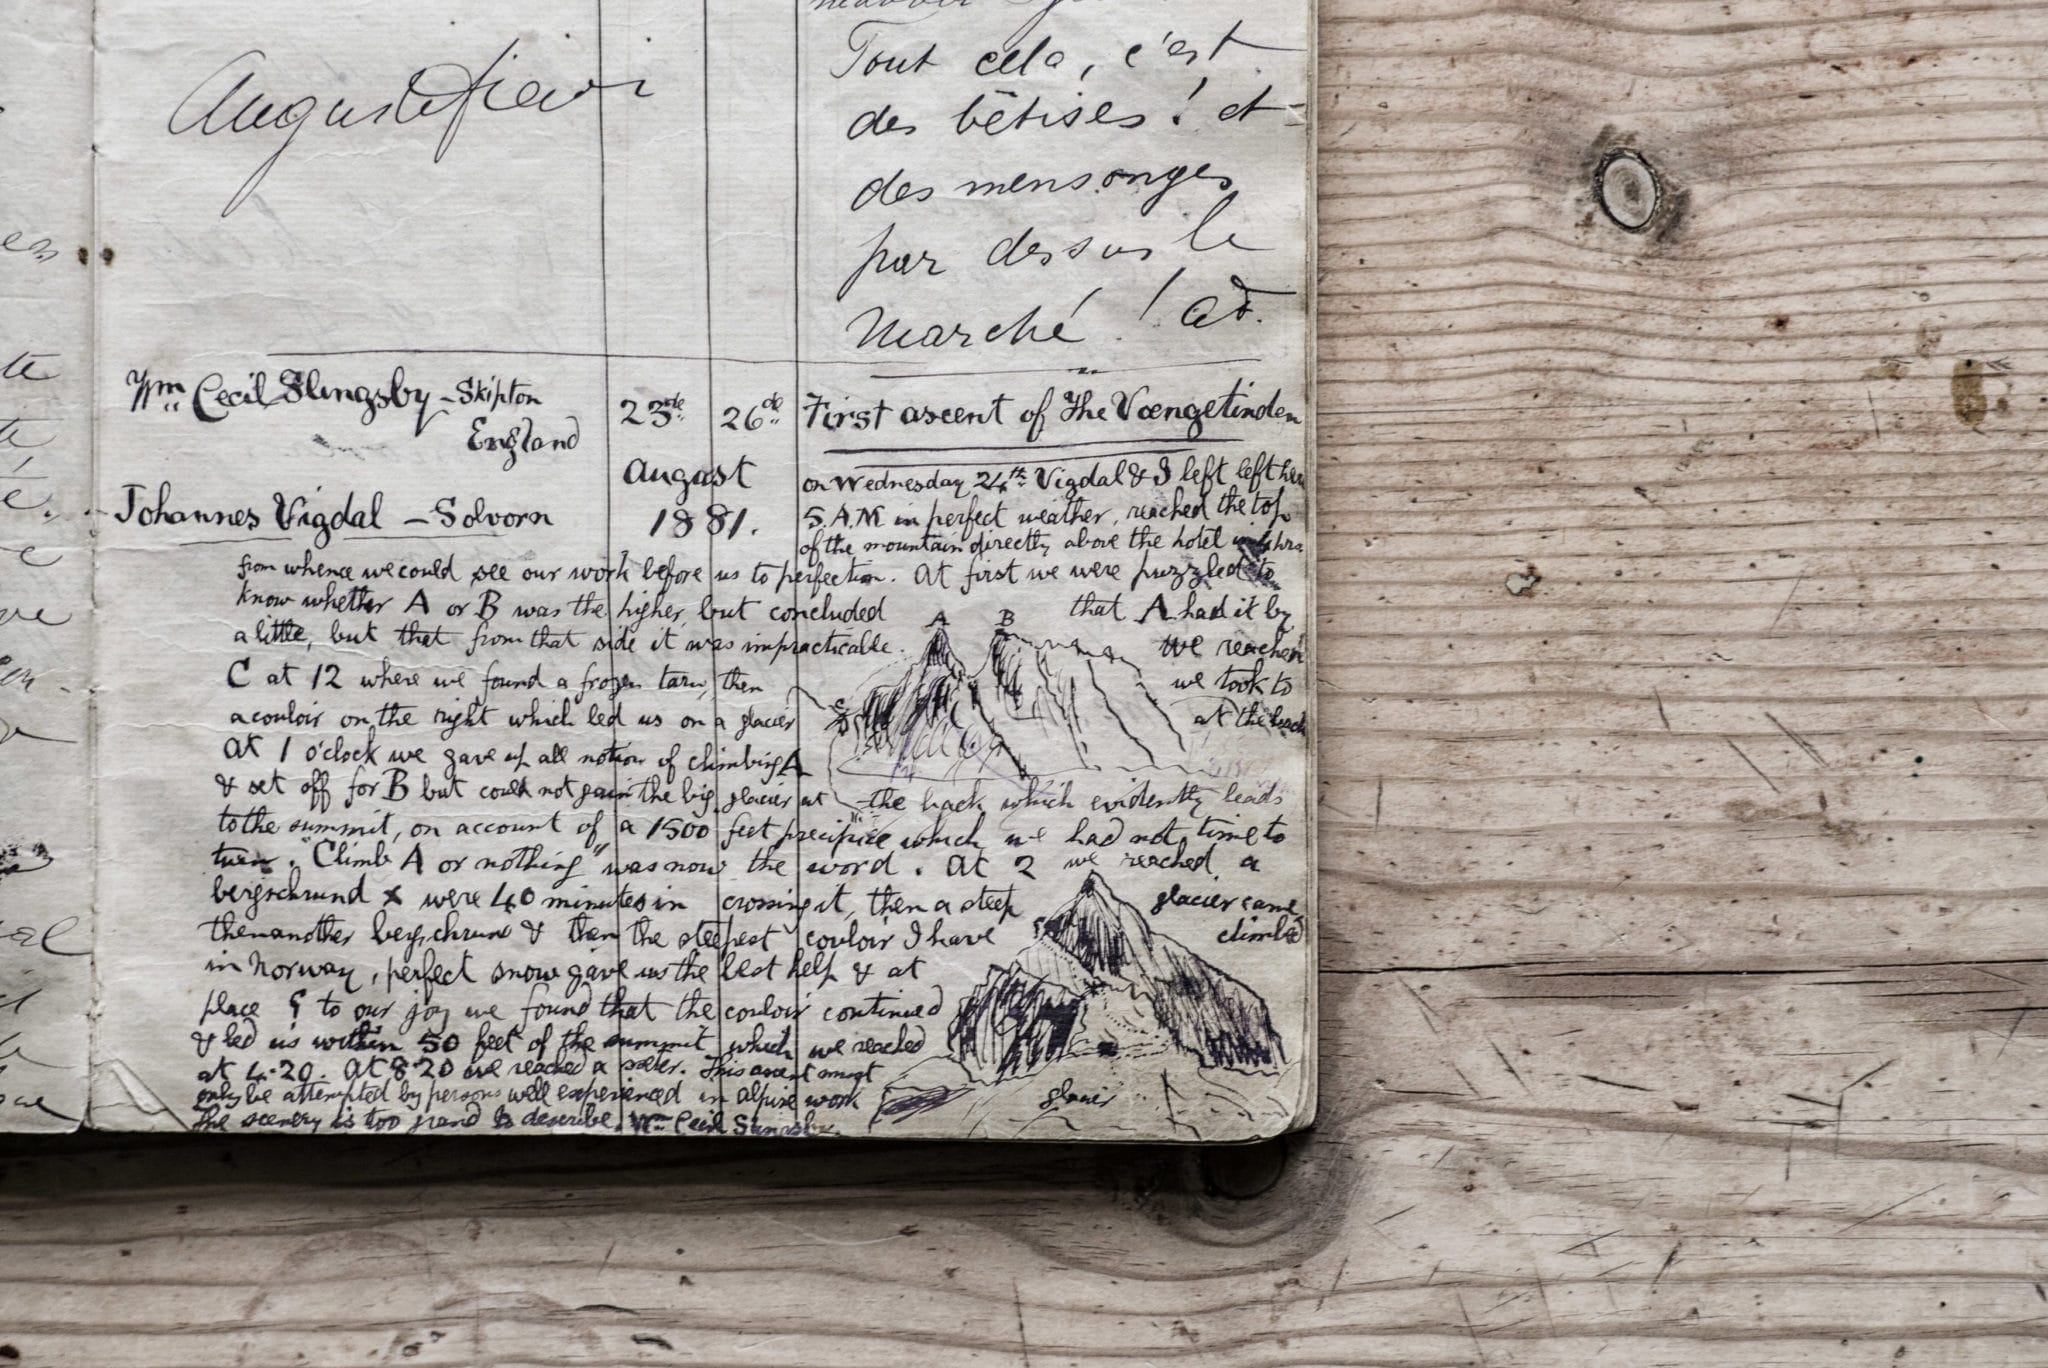 Tout cela, c'est
des bêtises! et
des mensonges
par dessus le
Marché!
Wm Cecil Slingsby – Skipton
England
23de 26de
August
1881.
First ascent of The Vœngetinden
Johannes Vigdal – Solvorn
on Wednesday 24th Vigdal & I left left here
5.A.M in perfect weather, reached the top
of the mountain directly above the hotel in 4 hrs
from whence we could see our work before us to perfection. At first we were puzzled to
know whether A or B was the higher, but concluded that A had it by
a little, but that from that side it was impracticable. We reached
C at 12 where we found a frozen tarn, then we took to
a couloir on the right which led us on a glacier at the back
At 1 o'clock we gave up all notion of climbing A
& set off for B but could not gain the big glacier at the back which evidently leads
to the summit, on account of a 1500 feet precipice which we had not time to
turn. "Climb A or nothing" was now the word. At 2 we reached a
bergschrund & were 40 minutes in crossing it, then a steep glacier came
then another bergschrund & then the steepest couloir I have climbed
in Norway, perfect snow gave us the best help & at
place to our joy we found that the couloir continued
& led us within 50 feet of the summit which we reached
at 4.20. At 8.20 we reached a sæter. This ascent must
only be attempted by persons well experienced in alpine work
The scenery is too grand to describe. Wm Cecil Slingsby.
A B
C
glacier